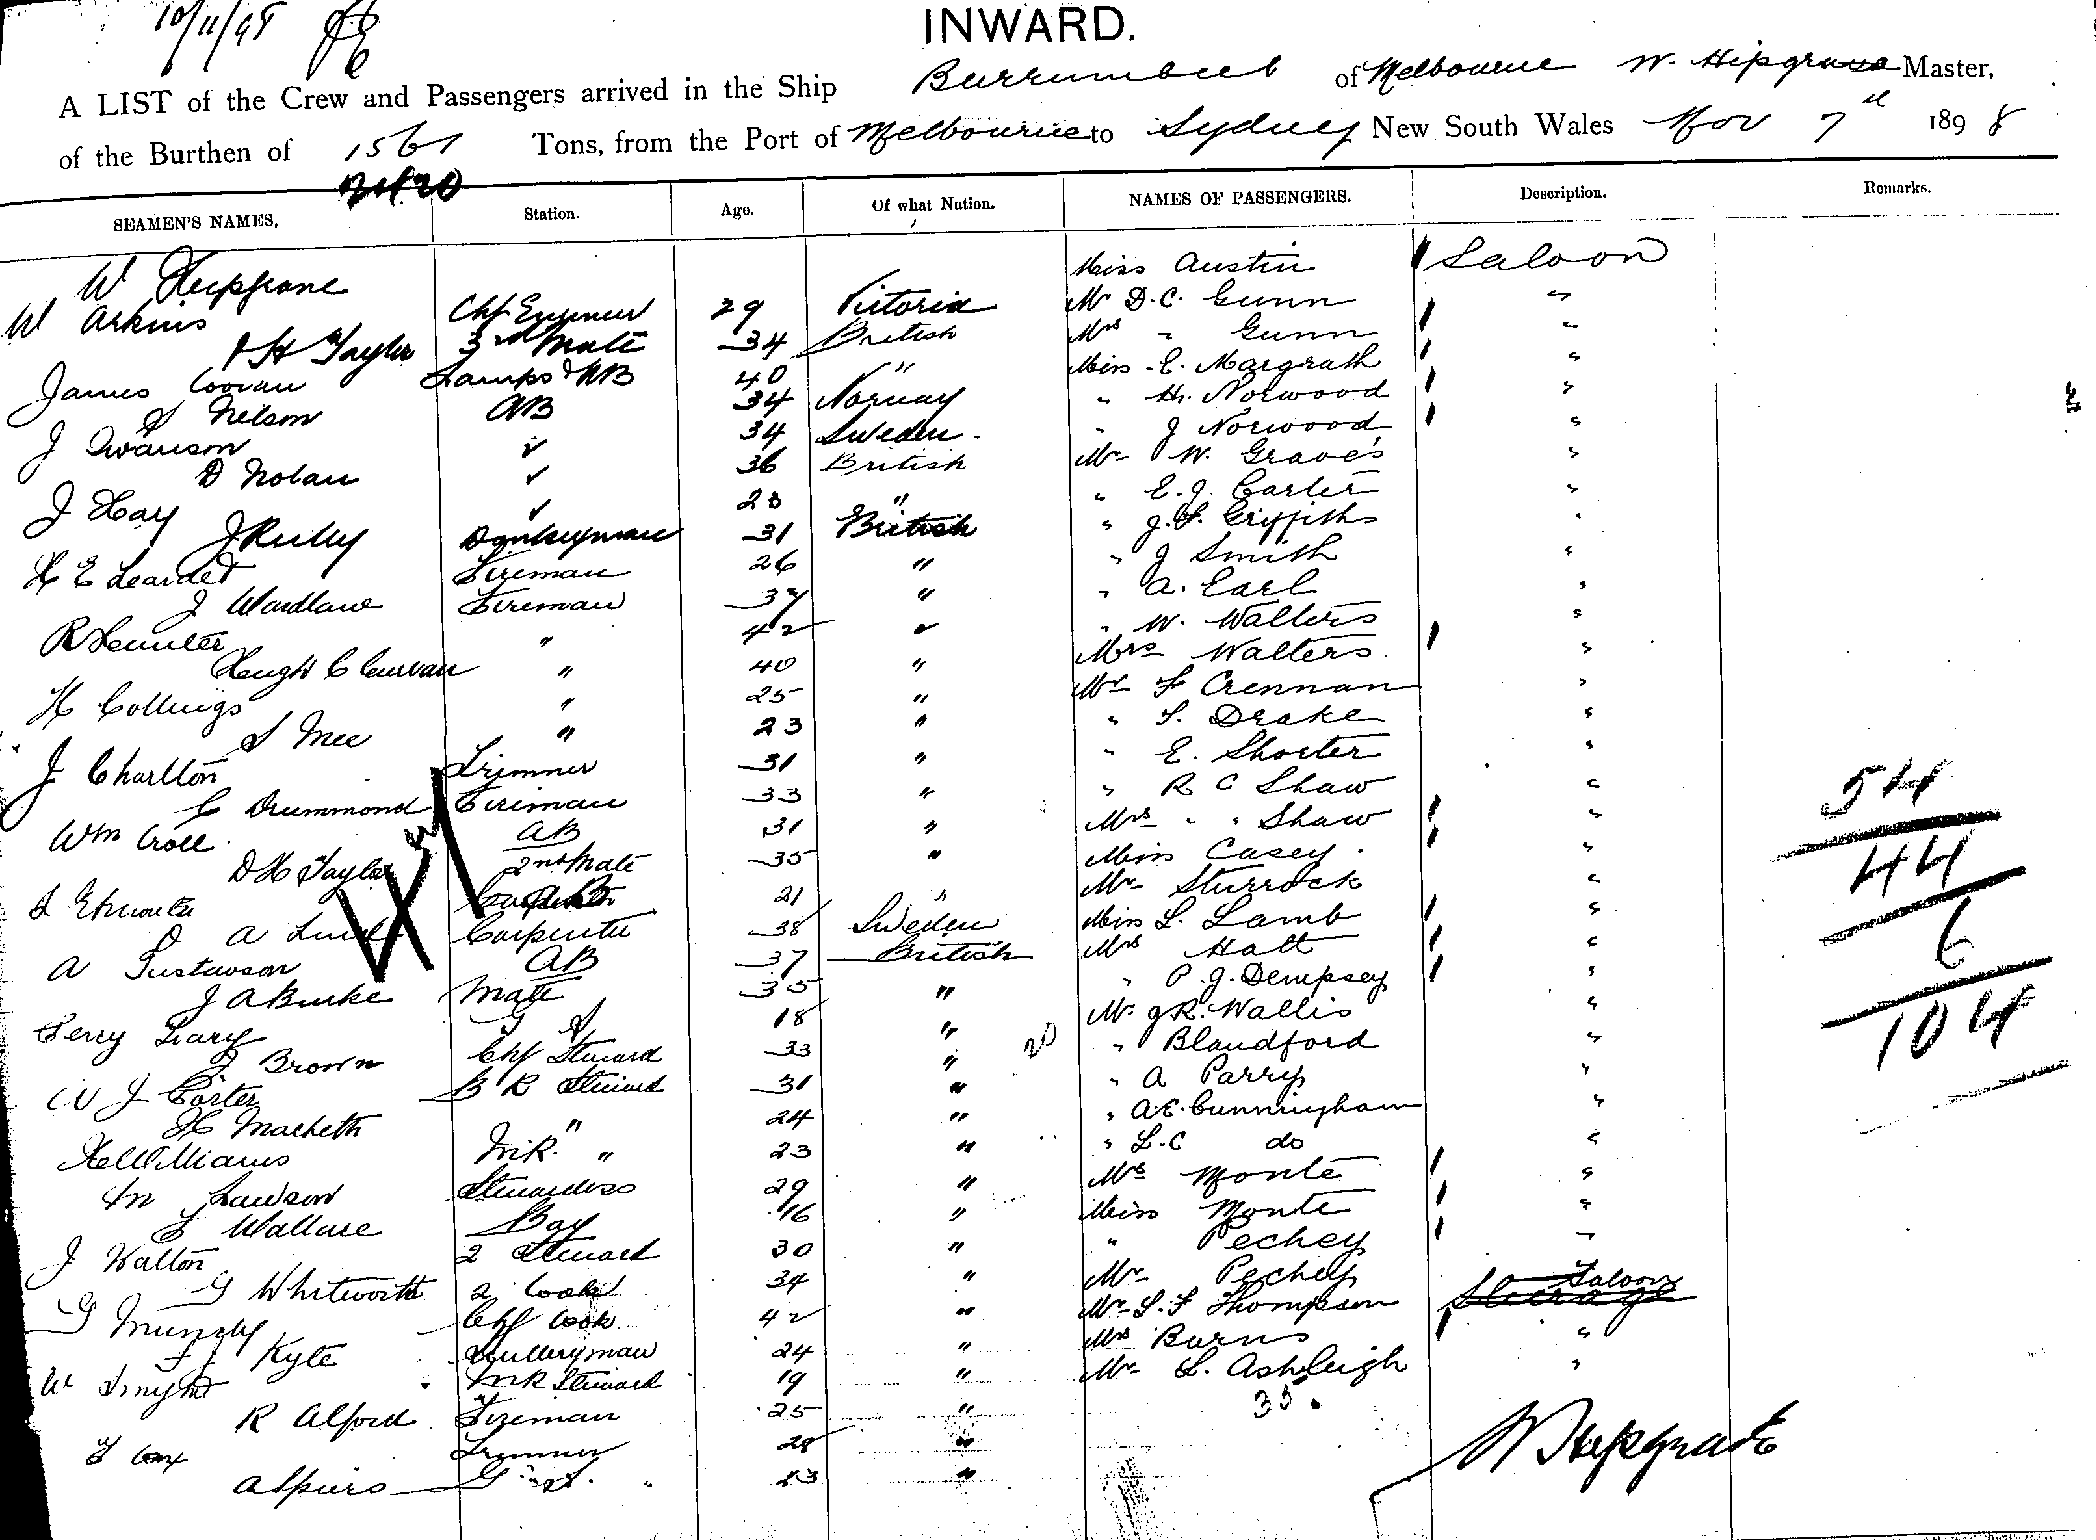 10/11/98
INWARD.
A LIST of the Crew and Passengers arrived in the Ship Burrumbeet of Melbourne W. Hipgrave Master,
of the Burthen of Tons, from the Port of Melbourne to Sydney New South Wales Nov 7th 1898
SEAMEN'S NAMES. Station. Age. Of what Nation. NAMES OF PASSENGERS. Description. Remarks.
W Hipgrave Miss Austin Saloon
W Arkins Chf Engineer 29 Victoria Mr D.C. Gunn "
H Tayler 3rd Mate 34 British Mrs " Gunn "
James Lamps & AB 40 " Miss E. Margrath "
Nelson AB 34 Norway " H. Norwood "
J Swanson " 34 Sweden. " J Norwood "
D Nolan " 36 British Mr W. Graves "
J Hay " 23 " " E. J. Carter "
J Reilly Donkeyman 31 British " J. S. Griffiths "
H E Leardet Fireman 26 " " J Smith "
J Wardlaw Fireman 37 " " A. Earl "
R " 42 " " W. Walters "
Hugh " 40 " Mrs Walters "
H Collings " 25 " Mr F Crennan "
S Mee " 23 " " S. Drake "
J Charlton Trimmer 31 " " E. Shorter "
C Drummond Fireman 33 " " R C Shaw "
Wm Croll AB 31 " Mrs " " Shaw "
D H Tayler 2nd Mate 35 " Miss Casey "
21 " Mr Sturrock "
A Lind Carpenter 38 Sweden Miss L. Lamb "
A Gustavson AB 37 British Mrs Hatt "
J A Burke Mate 35 " " P. J. Dempsey "
Percy 18 " Mr J R. Wallis "
Brown Chf Steward 33 " 20 " Blandford "
W J Porter B R Steward 31 " " A Parry "
H Macbeth " 24 " " A E. Cunningham "
H Williams " 23 " " L. C do "
M Lawson Stewardess 29 " Mrs Monte "
Wallace Boy 16 " Miss Monte "
J Walton 2 Steward 30 " " Pechey "
G Whitworth 2 Cook 34 " Mr Pechey Saloon
G Chf Cook 42 " Mr S. F Thompson Steerage
Kyte Sculleryman 24 " Mrs Burns "
W Steward 19 " Mr L. Ashleigh "
R Alford Fireman 25 " 35.
Cox Trimmer 28 "
A Spiers G S. 23 "
W Hipgrave
54
44
6
104